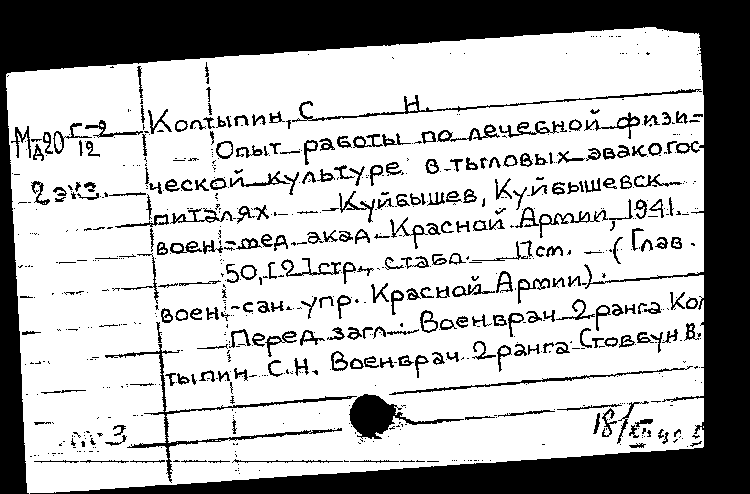 Колтыпин, С Н.
МД20 Г-2/12
Опыт работы по лечебной физи-
2 экз. ческой культуре в тыловых эвакогос-
питалях. Куйбышев, Куйбышевск.
воен.-мед. акад. Красной Армии, 1941.
50, [2] стр., с табл. Псм. — (Глав.
воен.-сан. упр. Красной Армии).
Перед загл.: Военврач 2 ранга Кол
тыпин С.Н. Военврач 2 ранга Стовбун В.
18/XII